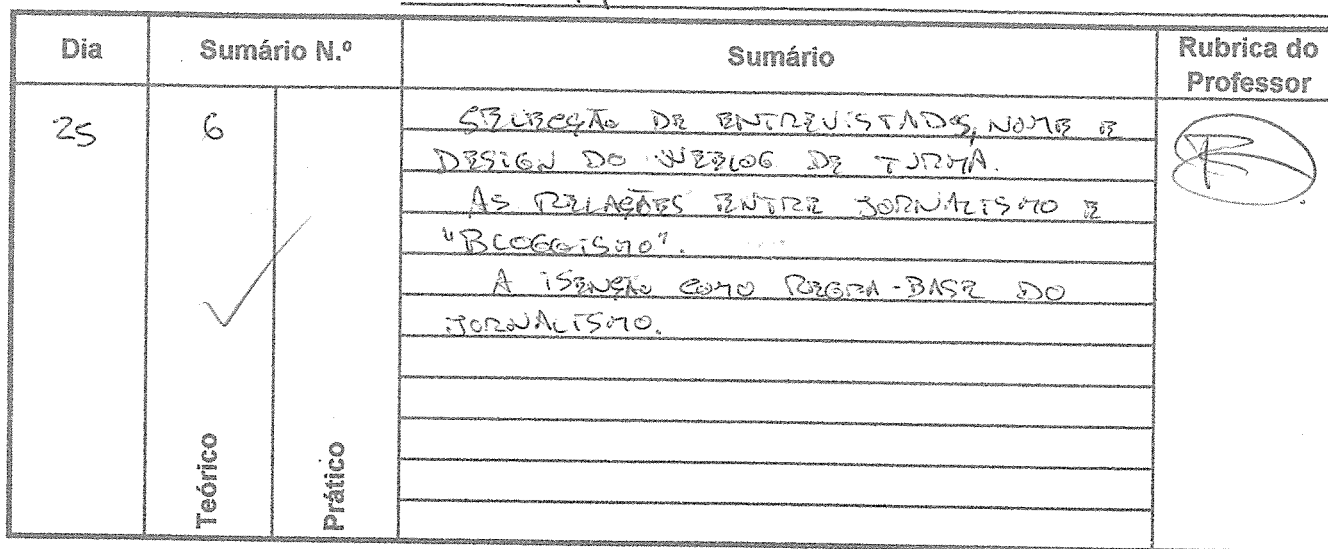 Dia
Sumário N.º
Sumário
Rubrica do
Professor
25
6
SELECÇÃO DE ENTREVISTADOS, NOME E
DESIGN DO WEBLOG DE TURMA.
AS RELAÇÕES ENTRE JORNALISMO E
"BLOGGISMO".
A ISENÇÃO COMO REGRA-BASE DO
JORNALISMO.
Teórico
Prático